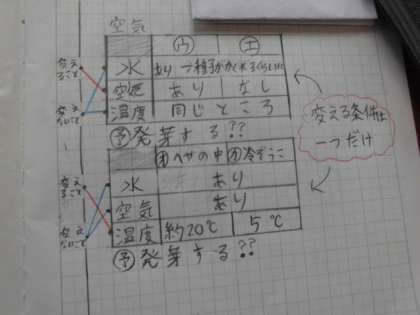 空気
ウ エ
水 あり→種子がかくれるくらい水
空気 あり なし
温度 同じところ
予発芽する??
変えること
変えないこと
変える条件は
一つだけ
オへやの中 カ冷ぞうこ
水 あり
空気 あり
温度 約20℃ 5℃
予発芽する??
変えること
変えないこと